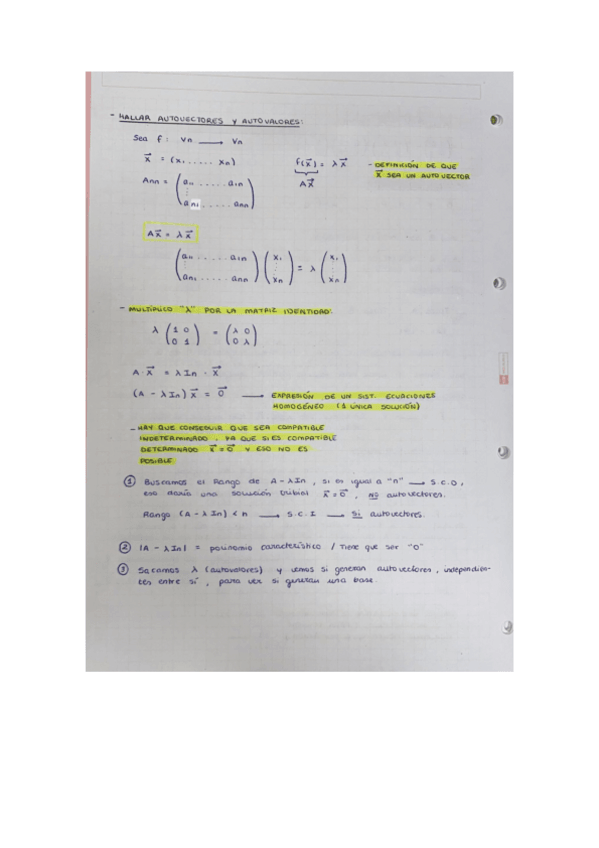 - HALLAR AUTOVECTORES Y AUTOVALORES:
Sea f: Vn ⟶ Vn
x⃗ = (x₁ ..... xn)
f(x⃗) = λ x⃗
Ax⃗
- DEFINICIÓN DE QUE
x⃗ SEA UN AUTOVECTOR
Ann = (a₁₁ ..... a₁n
⋮
an₁ ..... ann)
Ax⃗ = λx⃗
(a₁₁ ..... a₁n
⋮
an₁ ..... ann) (x₁ ⋮ xn) = λ (x₁ ⋮ xn)
- MULTIPLICO "λ" POR LA MATRIZ IDENTIDAD:
λ (1 0
0 1) = (λ 0
0 λ)
A · x⃗ = λ In · x⃗
(A - λ In) x⃗ = 0⃗ ⟶ EXPRESIÓN DE UN SIST. ECUACIONES
HOMOGÉNEO (1 ÚNICA SOLUCIÓN)
- HAY QUE CONSEGUIR QUE SEA COMPATIBLE
INDETERMINADO, YA QUE SI ES COMPATIBLE
DETERMINADO x⃗ = 0⃗ Y ESO NO ES
POSIBLE
① Buscamos el Rango de A - λIn, si es igual a "n" ⟶ S.C.D,
eso daría una solución trivial x⃗ = 0⃗, no autovectores.
Rango (A - λIn) < n ⟶ S.C.I ⟶ Si autovectores.
② |A - λIn| = polinomio característico / Tiene que ser "0"
③ Sacamos λ (autovalores) y vemos si generan autovectores, independien-
tes entre sí, para ver si generan una base.